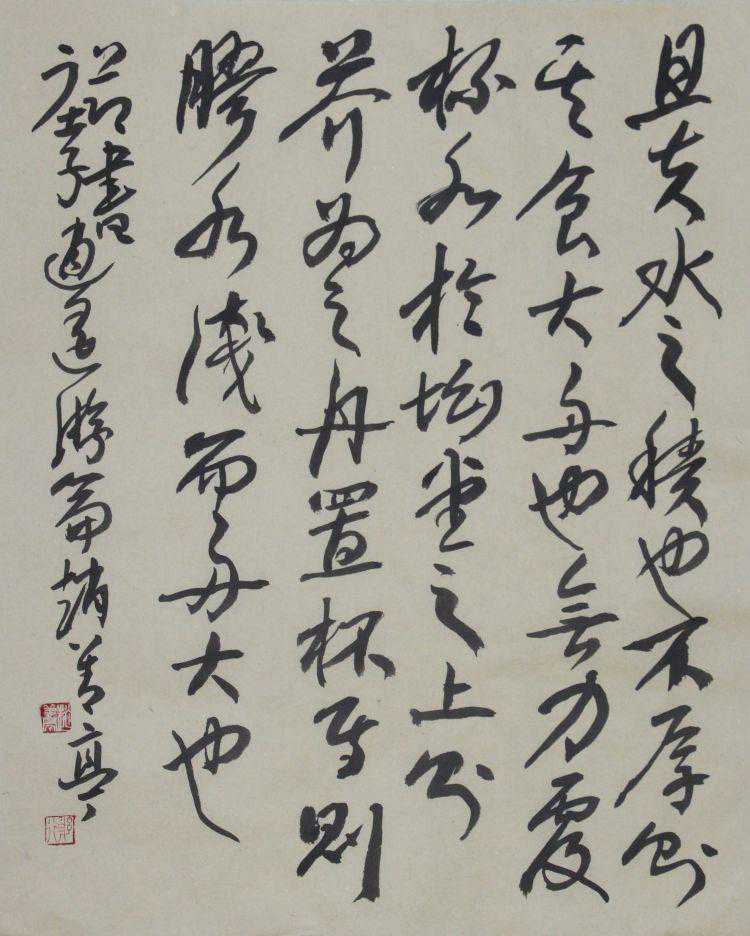 且夫水之積也不厚則
其負大舟也無力覆
杯水於坳堂之上則
芥为之舟置杯焉則
膠水淺而舟大也
節書
庄子逍遥游篇趙亭